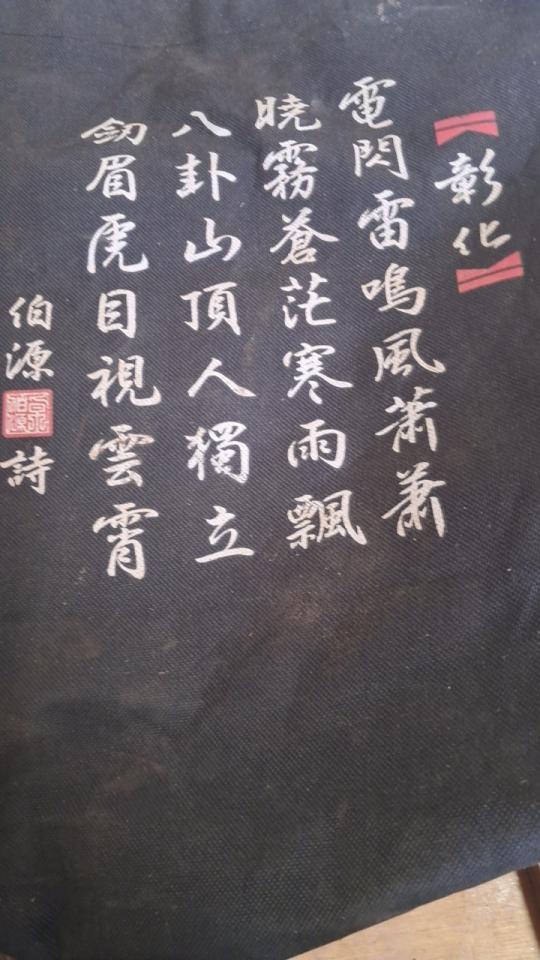 【彰化】
電閃雷鳴風蕭蕭
曉霧蒼茫寒雨飄
八卦山頂人獨立
劒眉虎目視雲霄
伯源
詩